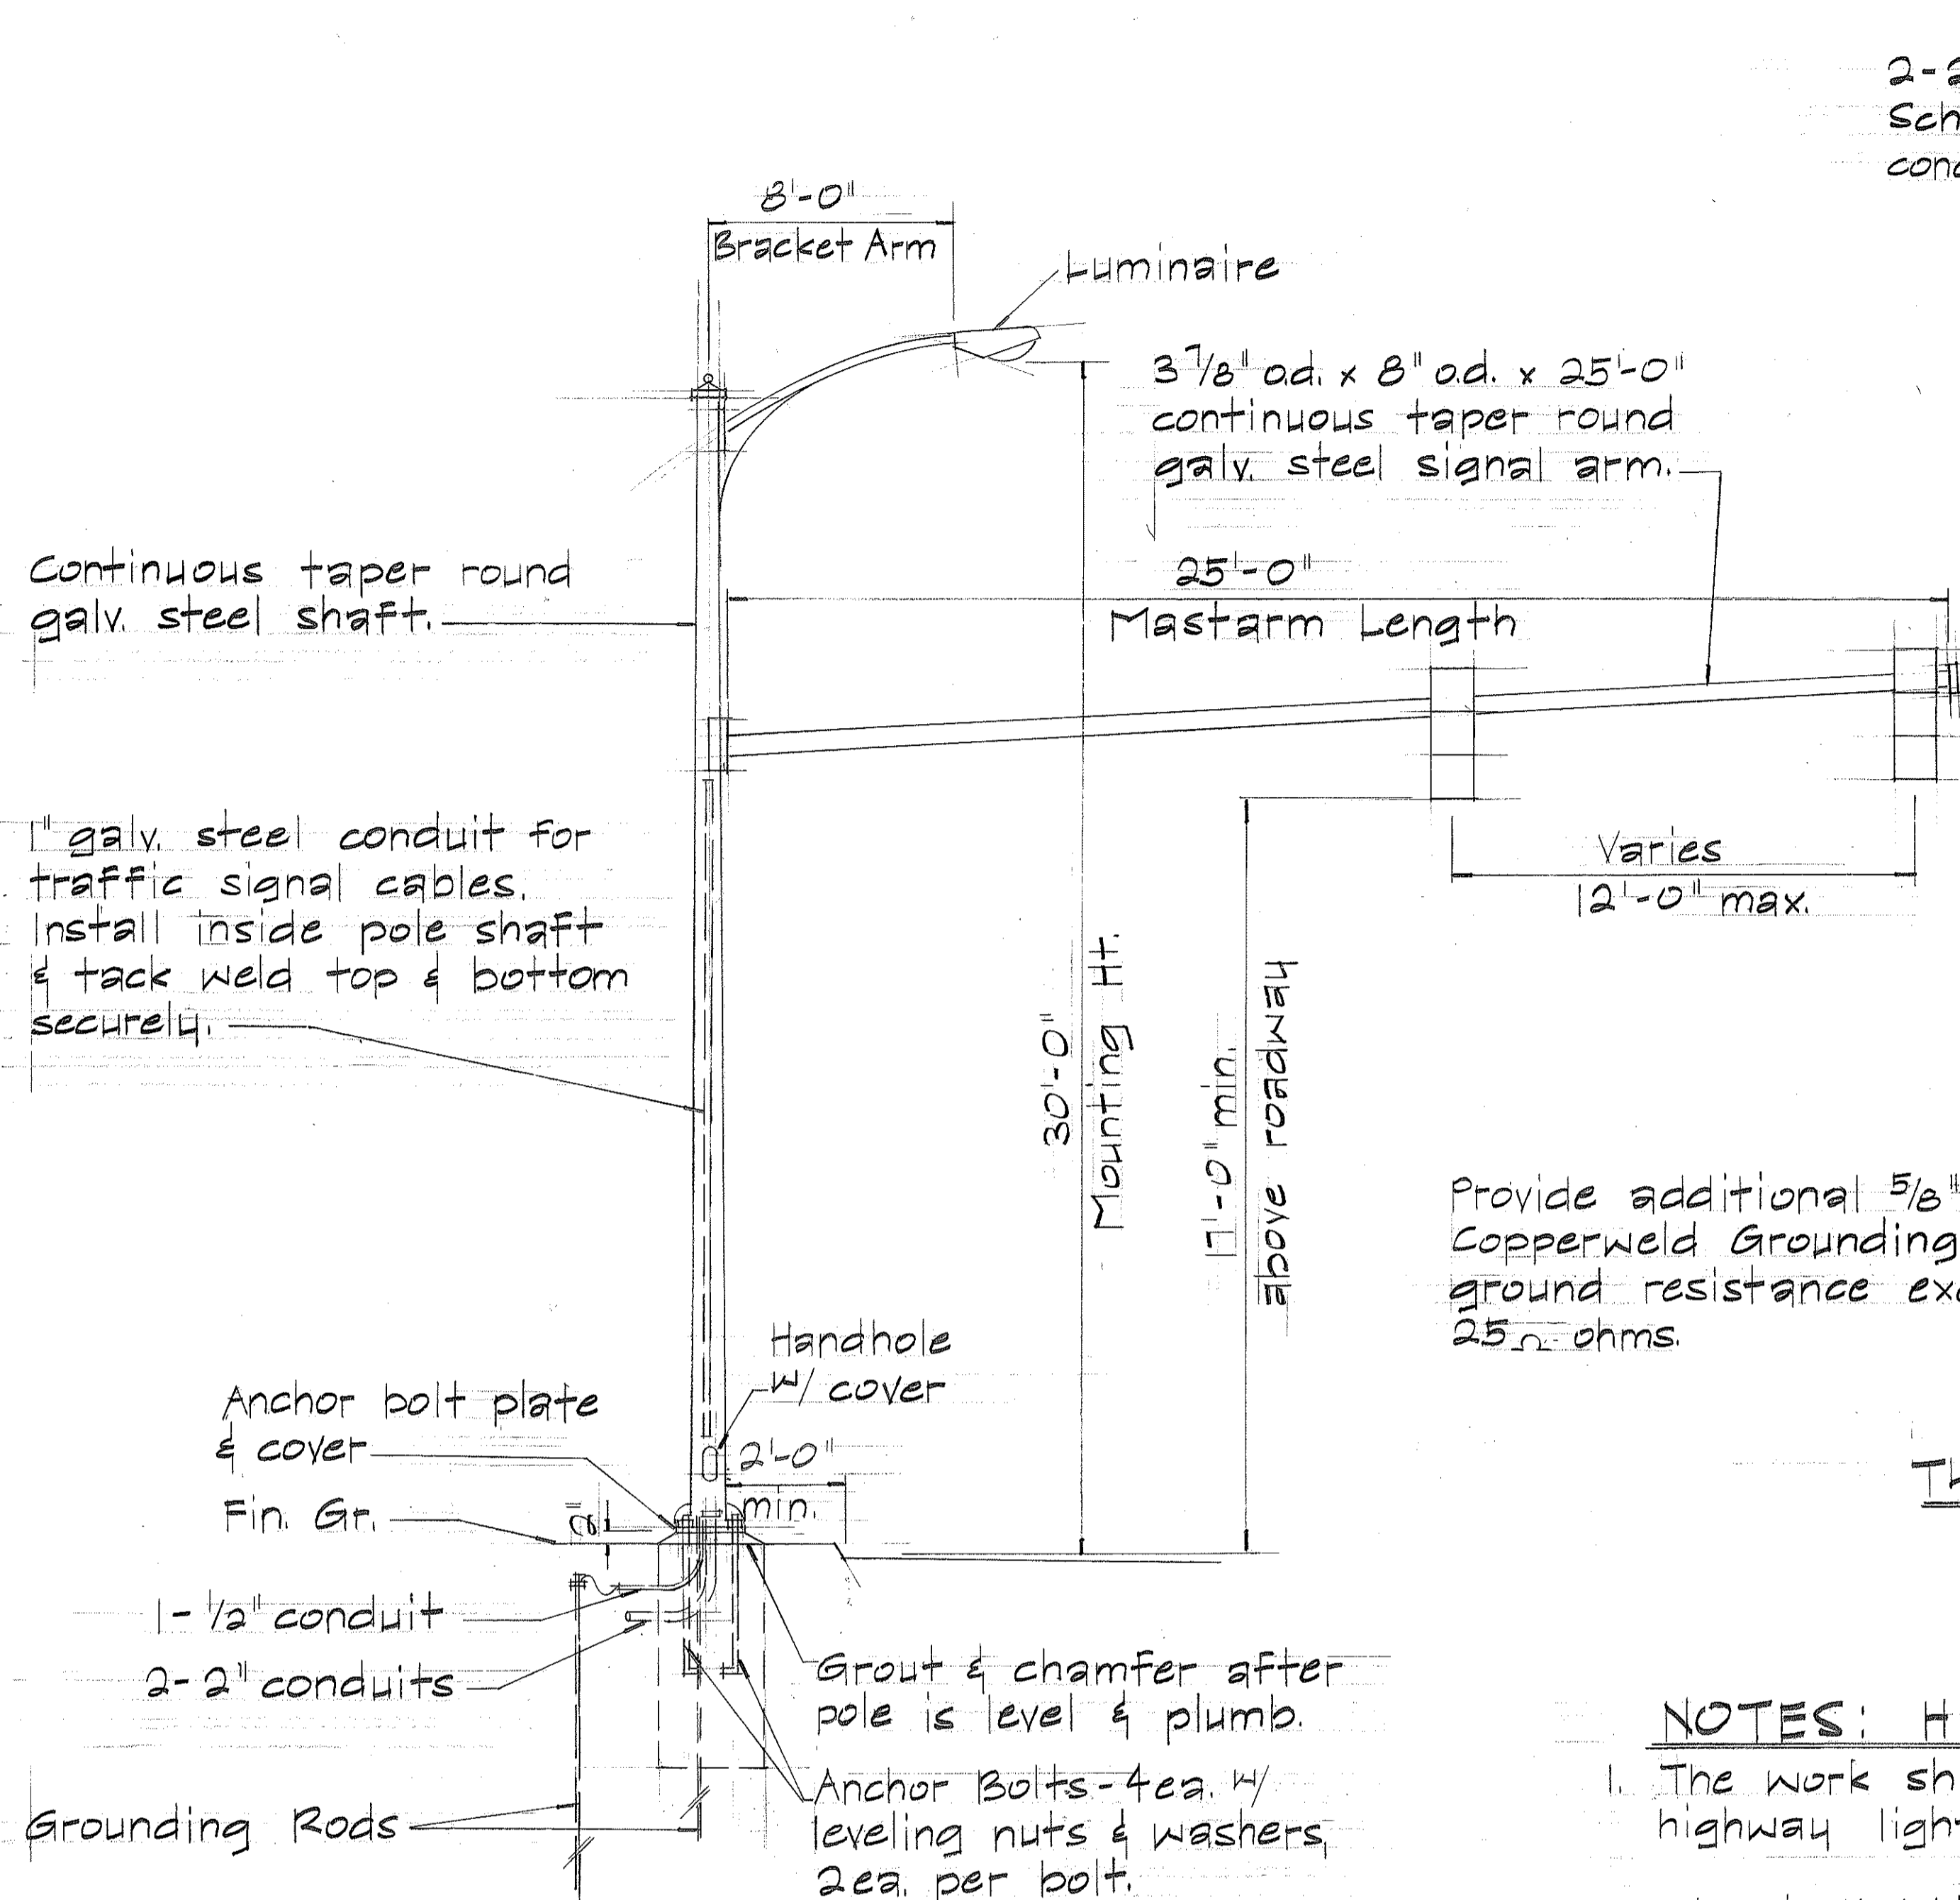 2-2
Sch
cond
8'-0"
Bracket Arm
Luminaire
3 7/8" o.d. x 8" o.d. x 25'-0"
continuous taper round
galv. steel signal arm.
Continuous taper round
galv. steel shaft.
25'-0"
Mastarm Length
1" galv. steel conduit for
traffic signal cables.
Install inside pole shaft
& tack weld top & bottom
securely.
Varies
12'-0" max.
30'-0"
Mounting Ht.
17'-0" min.
above roadway
Provide additional 5/8"
Copperweld Grounding
ground resistance exc
25 Ω ohms.
Handhole
w/ cover
Anchor bolt plate
& cover
2'-0"
min.
Fin. Gr.
2"
Th
1-1/2" conduit
2-2" conduits
Grout & chamfer after
pole is level & plumb.
Anchor Bolts-4ea. w/
leveling nuts & washers,
2ea. per bolt.
Grounding Rods
NOTES: H
1. The work sh
highway ligh